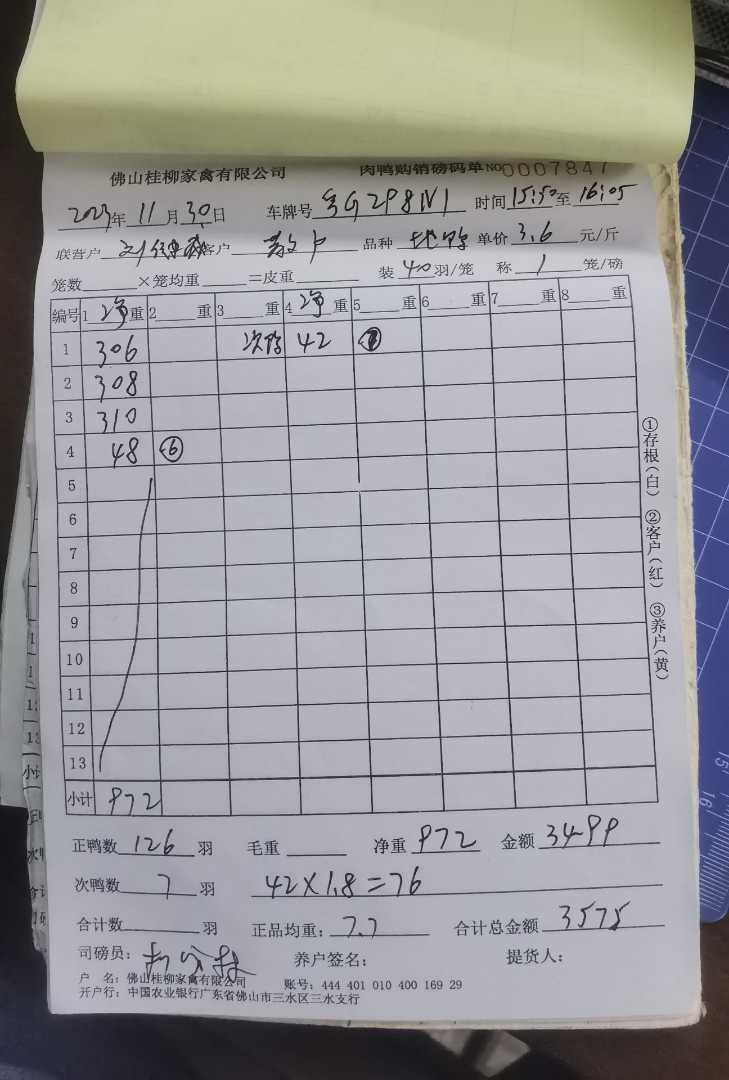 佛山桂柳家禽有限公司 肉鸭购销磅码单 NO 0007847
2023年 11月30日 车牌号 粤G298N1 时间 15:50至16:05
联营户 客户 散户 品种 单价 3.6 元/斤
笼数 ×笼均重 =皮重 装 40 羽/笼 称 1 笼/磅
编号 1 净重 2 重 3 重 4 净重 5 重 6 重 7 重 8 重
1 306 次鸭 42 ⑦
2 308
3 310
4 48 ⑥
5
6
7
8
9
10
11
12
13
小计 972
正鸭数 126 羽 毛重 净重 972 金额 3499
次鸭数 7 羽 42×1.8=76
合计数 羽 正品均重: 7.7 合计总金额 3575
司磅员: 养户签名: 提货人:
户 名: 佛山桂柳家禽有限公司 账号: 444 401 010 400 169 29
开户行: 中国农业银行广东省佛山市三水区三水支行
①存根(白) ②客户(红) ③养户(黄)
1
1
1
13
小计
15
16